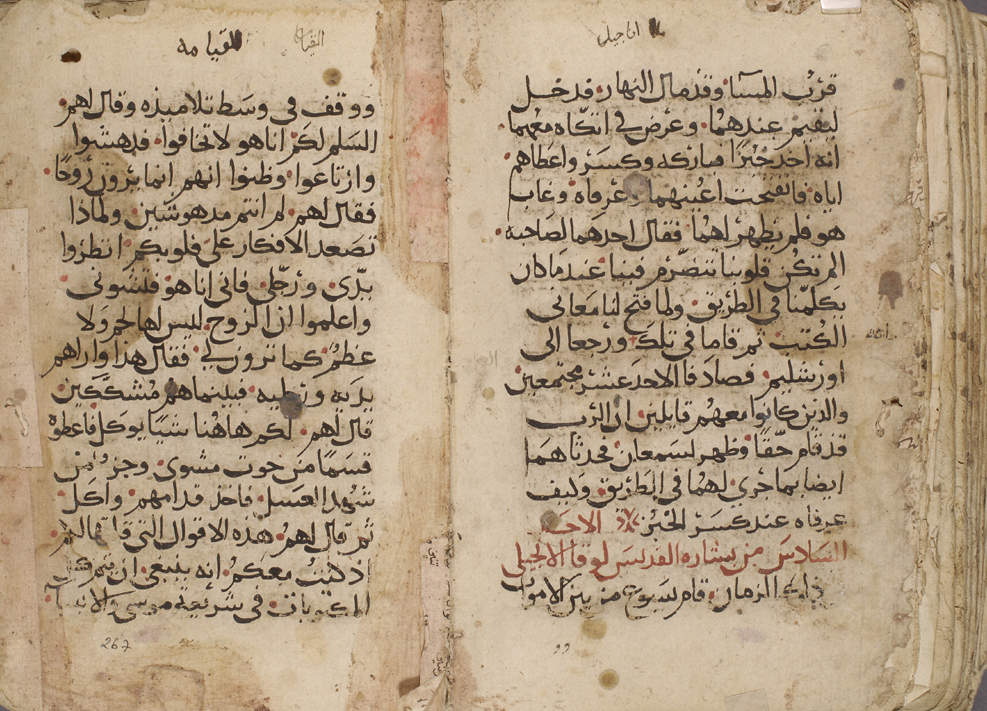 اناجيل
قرب المسآ وقد مال النهار فدخل
ليقيم عندهما وعرض في اتكاه معهما
انه اخذ خبزا فباركه وكسر واعطاهم
اياه فانفتحت اعينهما وعرفاه وغاب
هو فلم يظهر لهما فقال احدهما لصاحبه
الم تكن قلوبنا تتضرم فينا عندما كان
يكلمنا في الطريق ولما فتح لنا معاني
الكتب ثم قاما في تلك ورجعا الى
اورشليم فصادفا الاحد عشر مجتمعين
والذين كانوا معهم قايلين ان الرب
قد قام حقا وظهر لسمعان فحدثاهما
ايضا بما جرى لهما في الطريق وكيف
عرفاه عند كسر الخبز الاحد
السادس من بشارة القديس لوقا الانجيلى
ذلك الزمان قام يسوع من بين الاموات
القيامه
ووقف في وسط تلاميذه وقال لهم
السلم لكم انا هو لا تخافوا فدهشوا
وارتاعوا وظنوا انهم انما يرون روحا
فقال لهم لم انتم مدهوشين ولماذا
تصعد الافكار على قلوبكم انظروا
يدى ورجلى فانى انا هو فتشونى
واعلموا ان الروح ليس لها لحم ولا
عظم كما ترون لي فقال هذا واراهم
يديه ورجليه فبينما هم مشككين
قال لهم لكم هاهنا شيا يوكل فاعطوه
قسما من حوت مشوى وجزء من
شهد العسل فاخذ قدامهم واكل
ثم قال لهم هذه الاقوال التي قلتها لكم
اذ كنت معكم انه ينبغي ان يتم كل
المكتوبات في شريعة موسى والانبيا
267